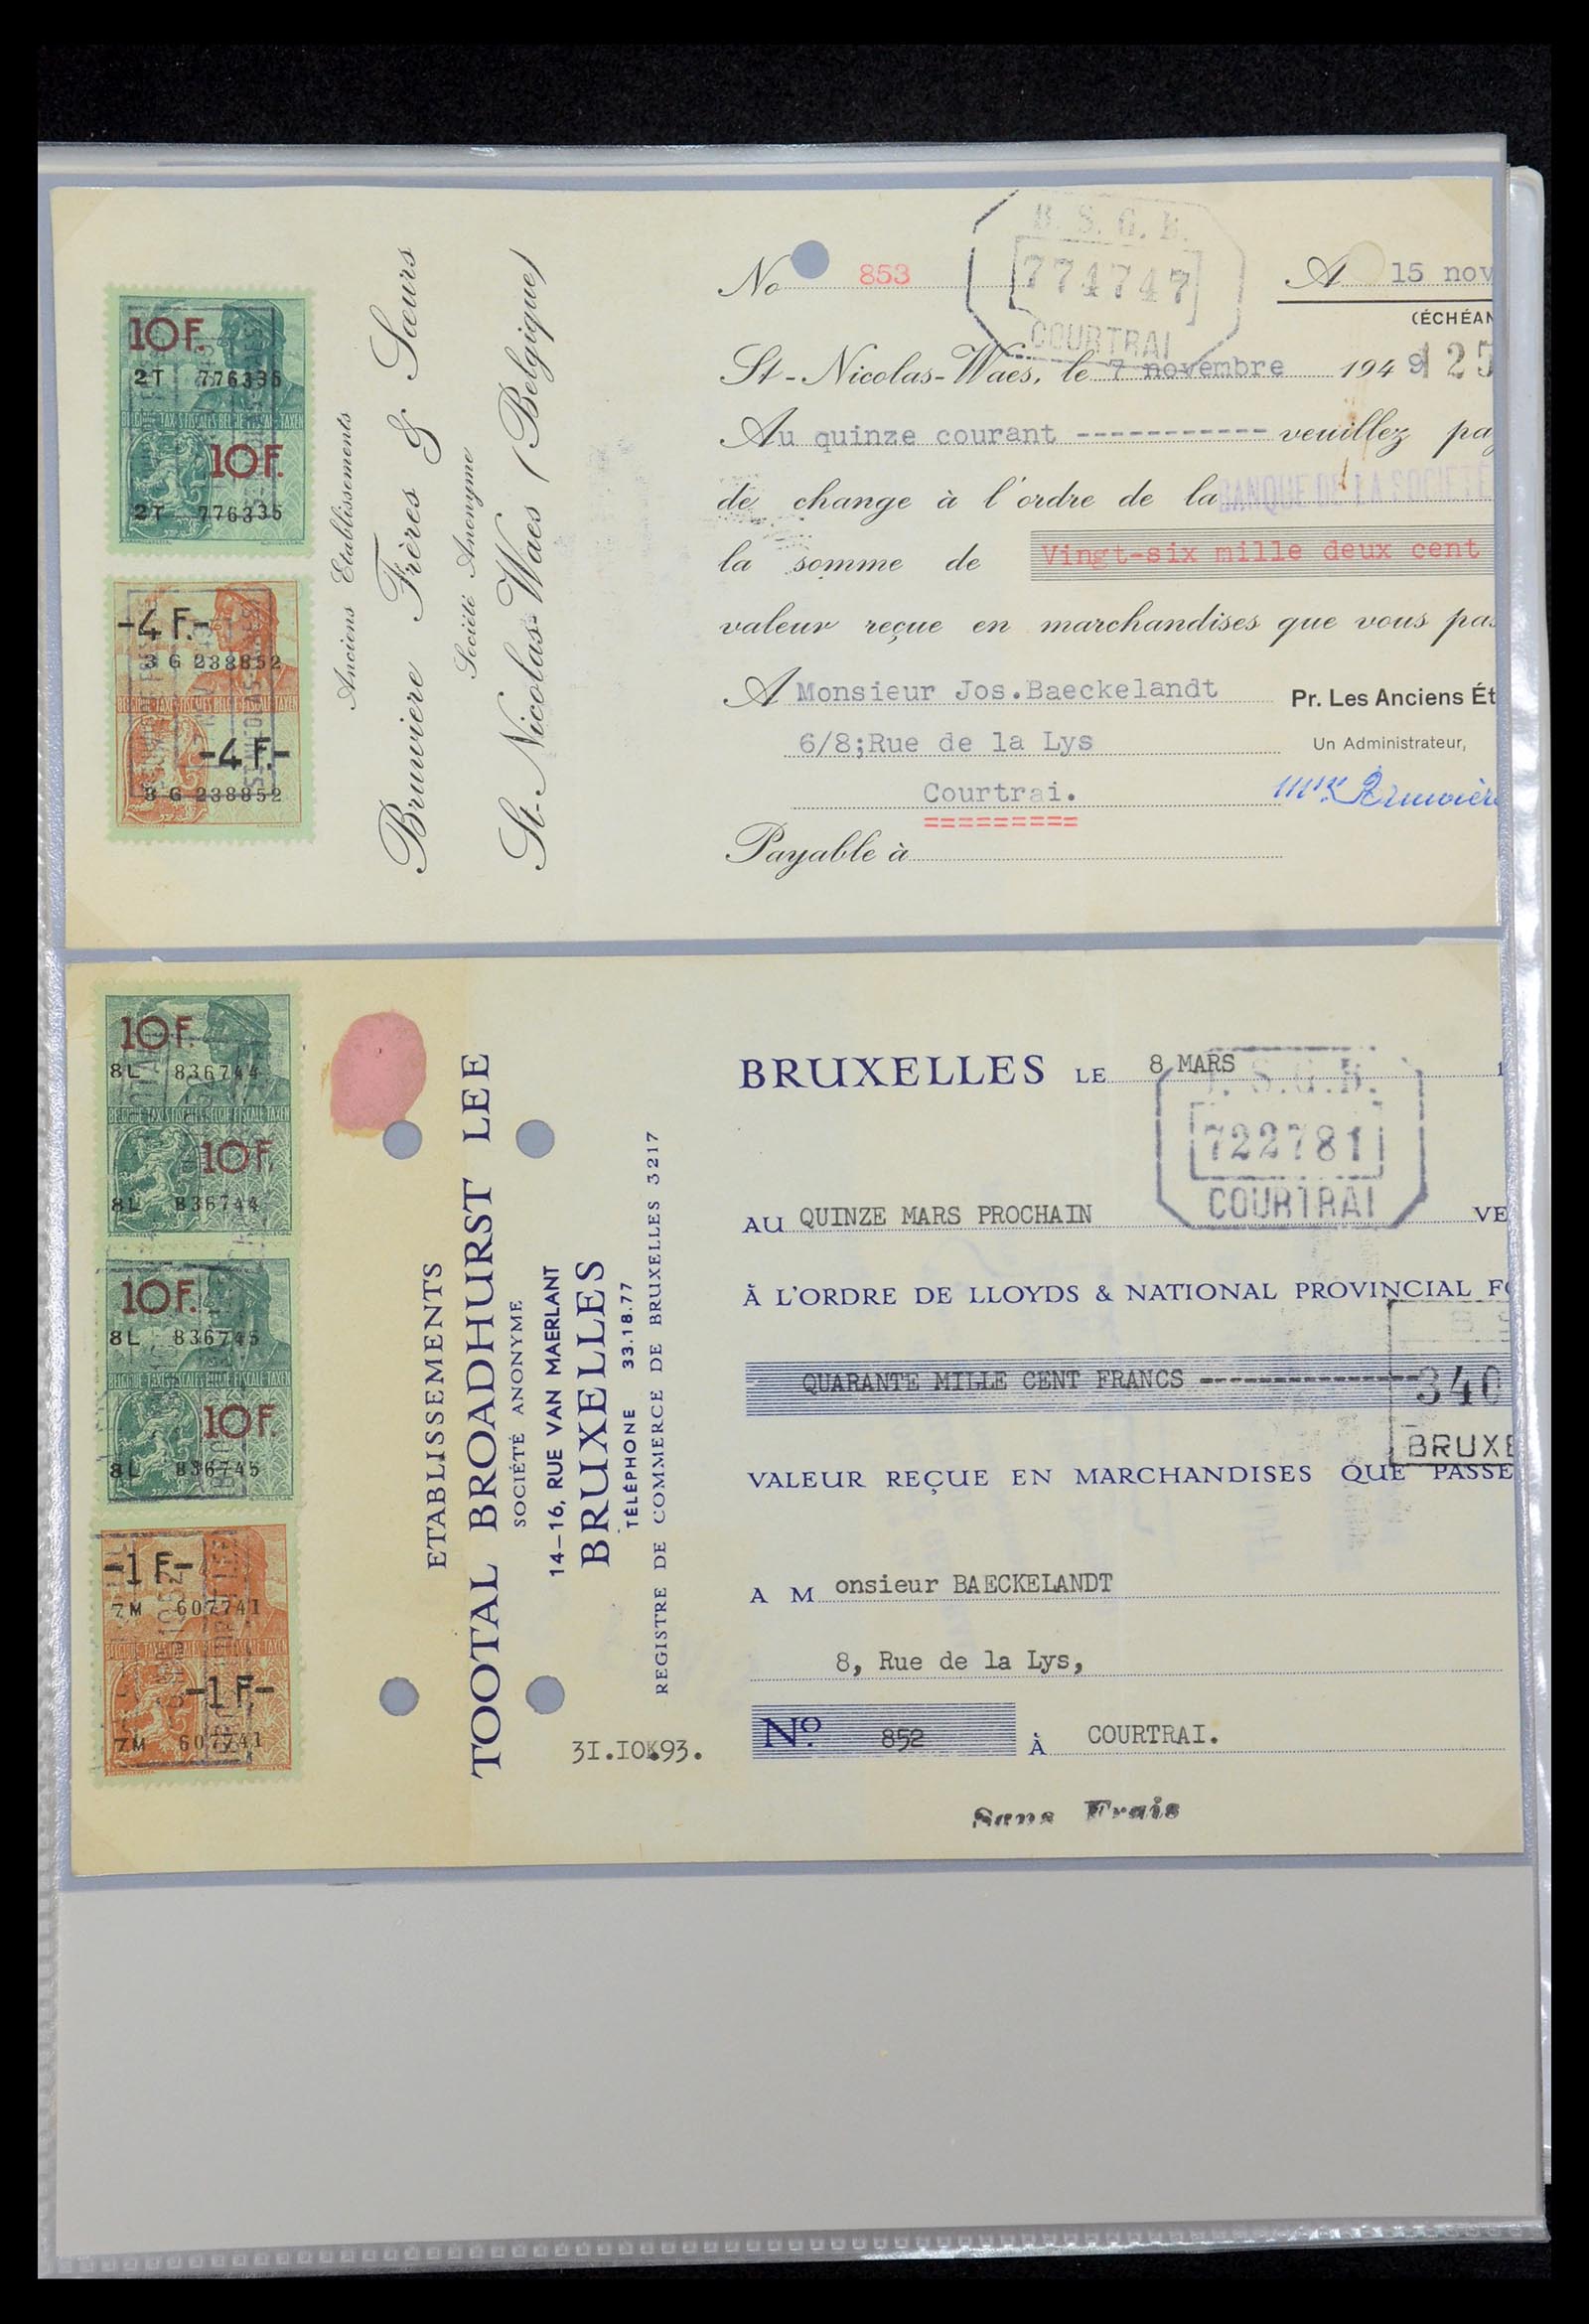 10F.
2T 776335
BELGIQUE TAXES FISCALES BELGIE FISCALE TAXEN
10F.
2T 776335
-4 F.-
3 G 238852
-4 F.-
3 G 238852
Anciens Etablissements
Bruwiere Frères & Sœurs
Société Anonyme
St-Nicolas-Waes (Belgique)
No 853
B. S. G. B.
774747
COURTRAI
A 15 nov
(ÉCHÉAN
St-Nicolas-Waes, le 7 novembre 1949
125
Au quinze courant ----------- veuillez pa
de change à l'ordre de la BANQUE DE LA SOCIÉTÉ
la somme de Vingt-six mille deux cent
valeur reçue en marchandises que vous pas
A Monsieur Jos.Baeckelandt
6/8;Rue de la Lys
Courtrai.
=========
Pr. Les Anciens Ét
Un Administrateur,
Payable à
10F.
8L 836744
BELGIQUE TAXES FISCALES BELGIE FISCALE TAXEN
10F.
8L 836744
10F.
8L 836745
BELGIQUE TAXES FISCALES BELGIE FISCALE TAXEN
10F.
8L 836745
-1 F-
7M 607741
-1 F-
7M 607741
ETABLISSEMENTS
TOOTAL BROADHURST LEE
SOCIÉTÉ ANONYME
14-16, RUE VAN MAERLANT
BRUXELLES
TÉLÉPHONE 33.18.77
REGISTRE DE COMMERCE DE BRUXELLES 3217
31.10K93.
BRUXELLES LE 8 MARS 1
S.G.B.
722781
COURTRAI
AU QUINZE MARS PROCHAIN VE
À L'ORDRE DE LLOYDS & NATIONAL PROVINCIAL FO
B S
QUARANTE MILLE CENT FRANCS ---------------
340
BRUXE
VALEUR REÇUE EN MARCHANDISES QUE PASSE
A M onsieur BAECKELANDT
8, Rue de la Lys,
Nº. 852 À COURTRAI.
Sans Frais